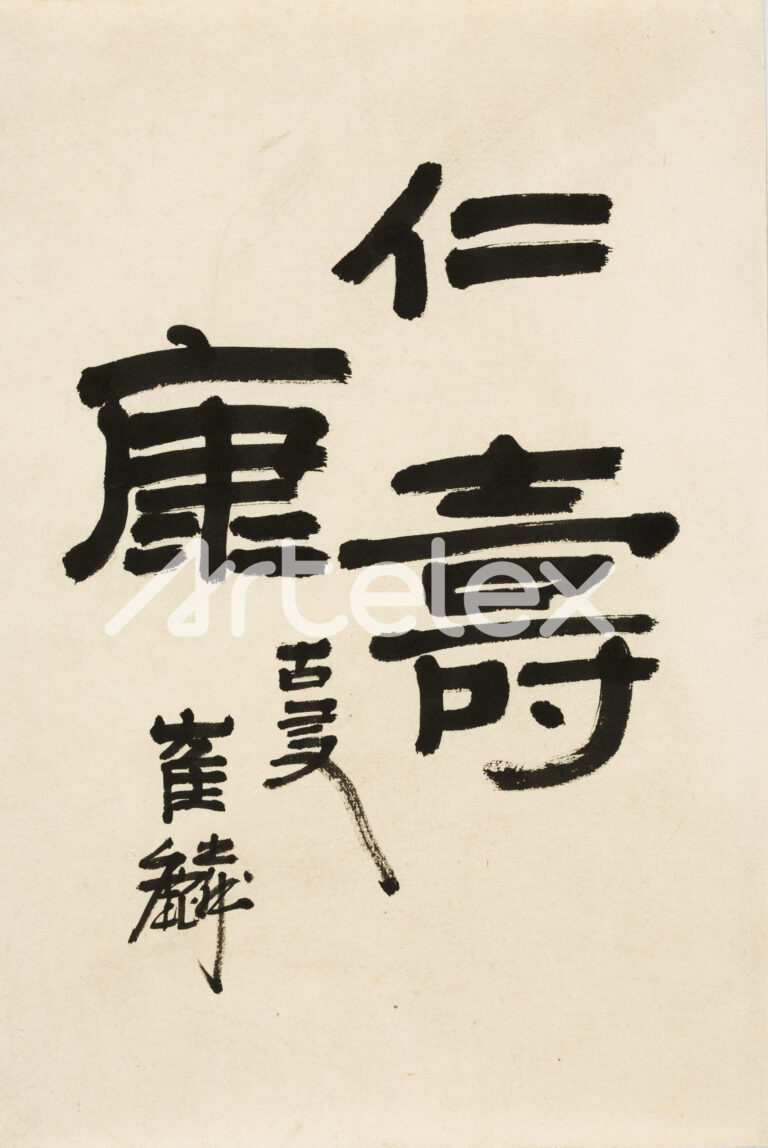 仁壽
康
古友
崔麟
Artelex